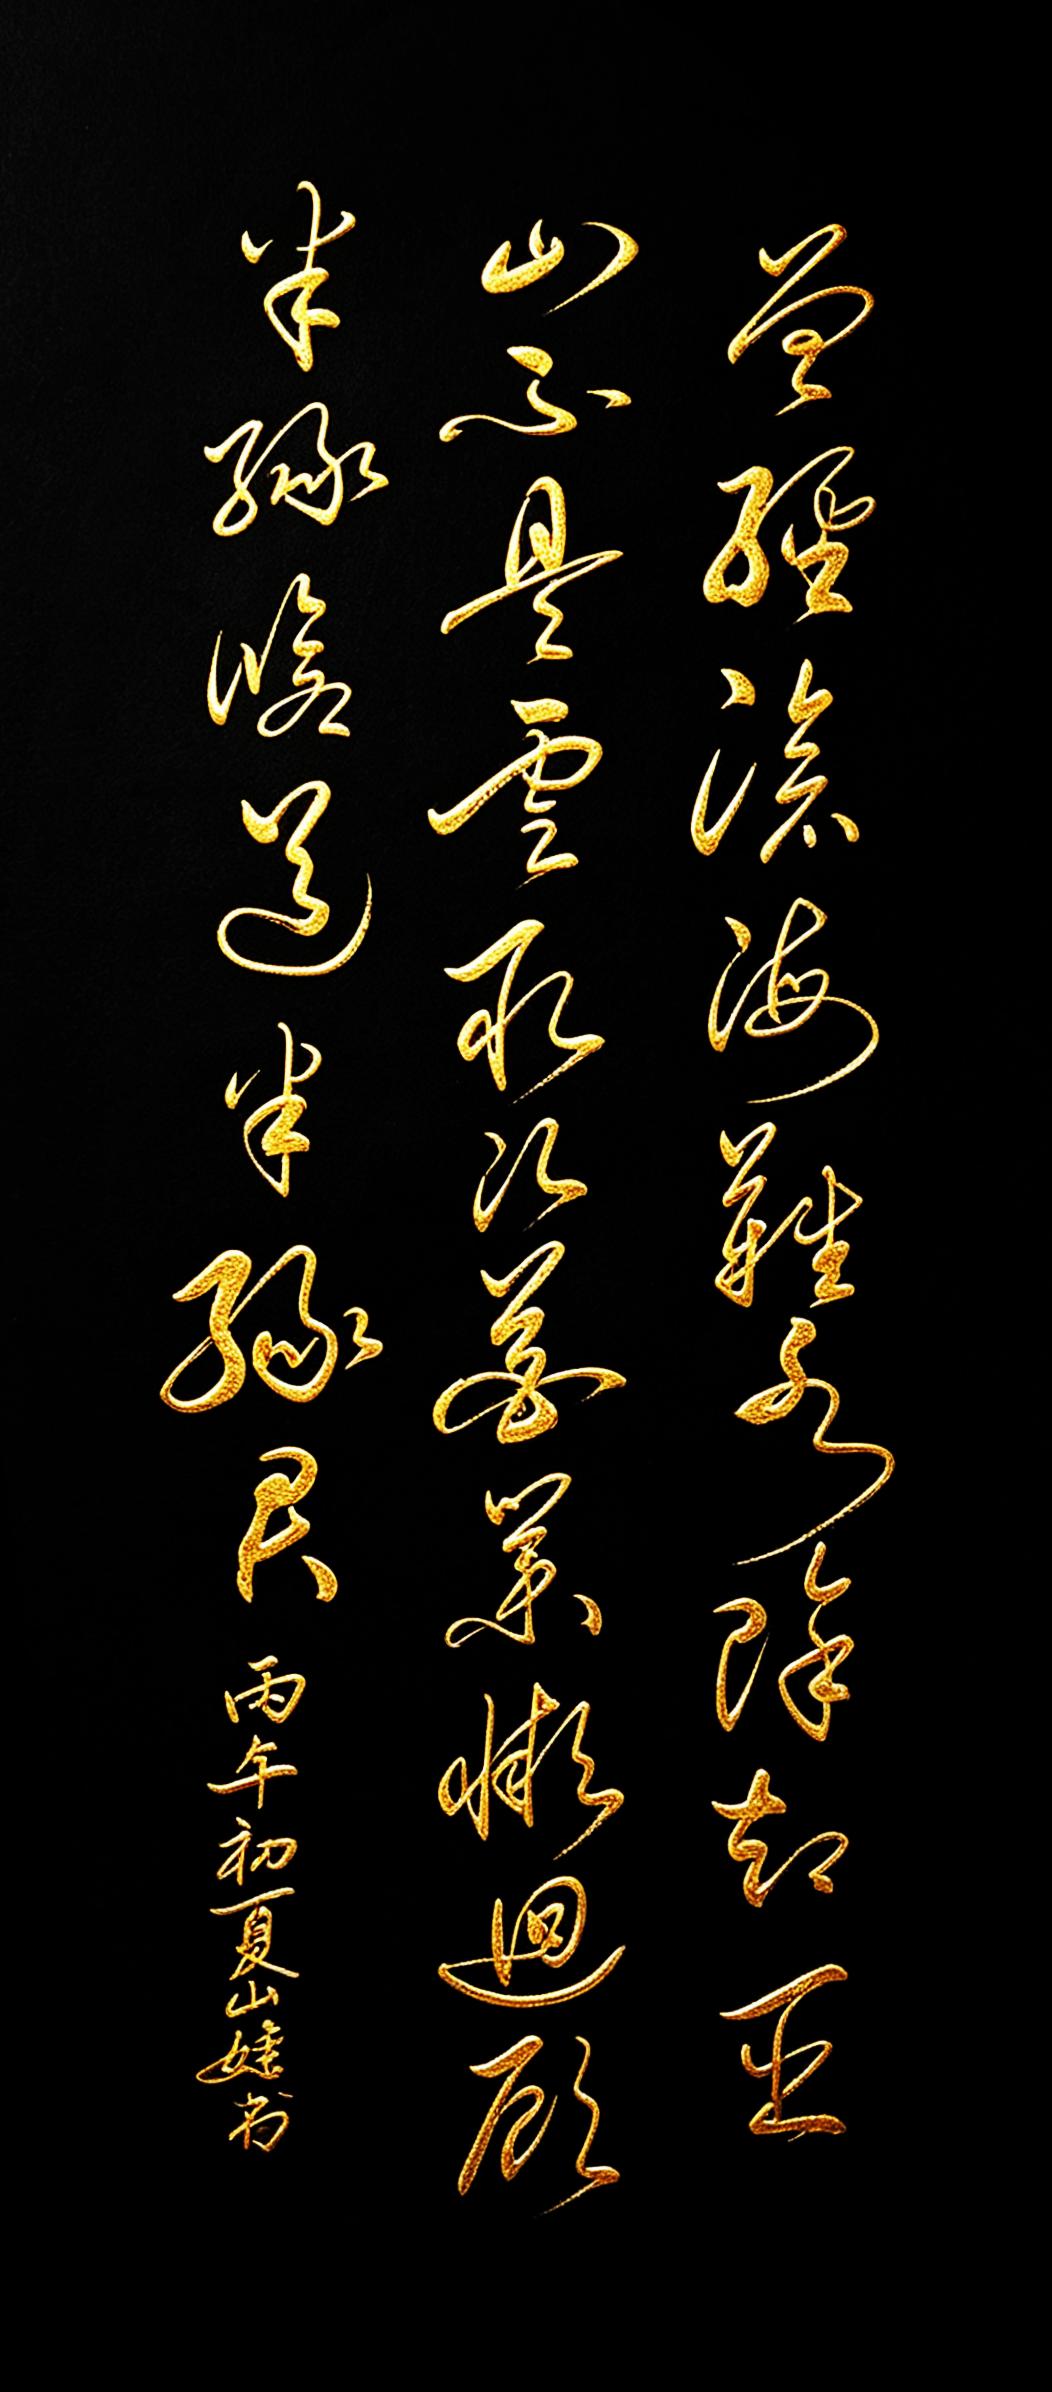 曾經滄海難水除却巫
山不是雲取次花叢懶迴顧
半緣修道半緣君
丙午初夏山婕书